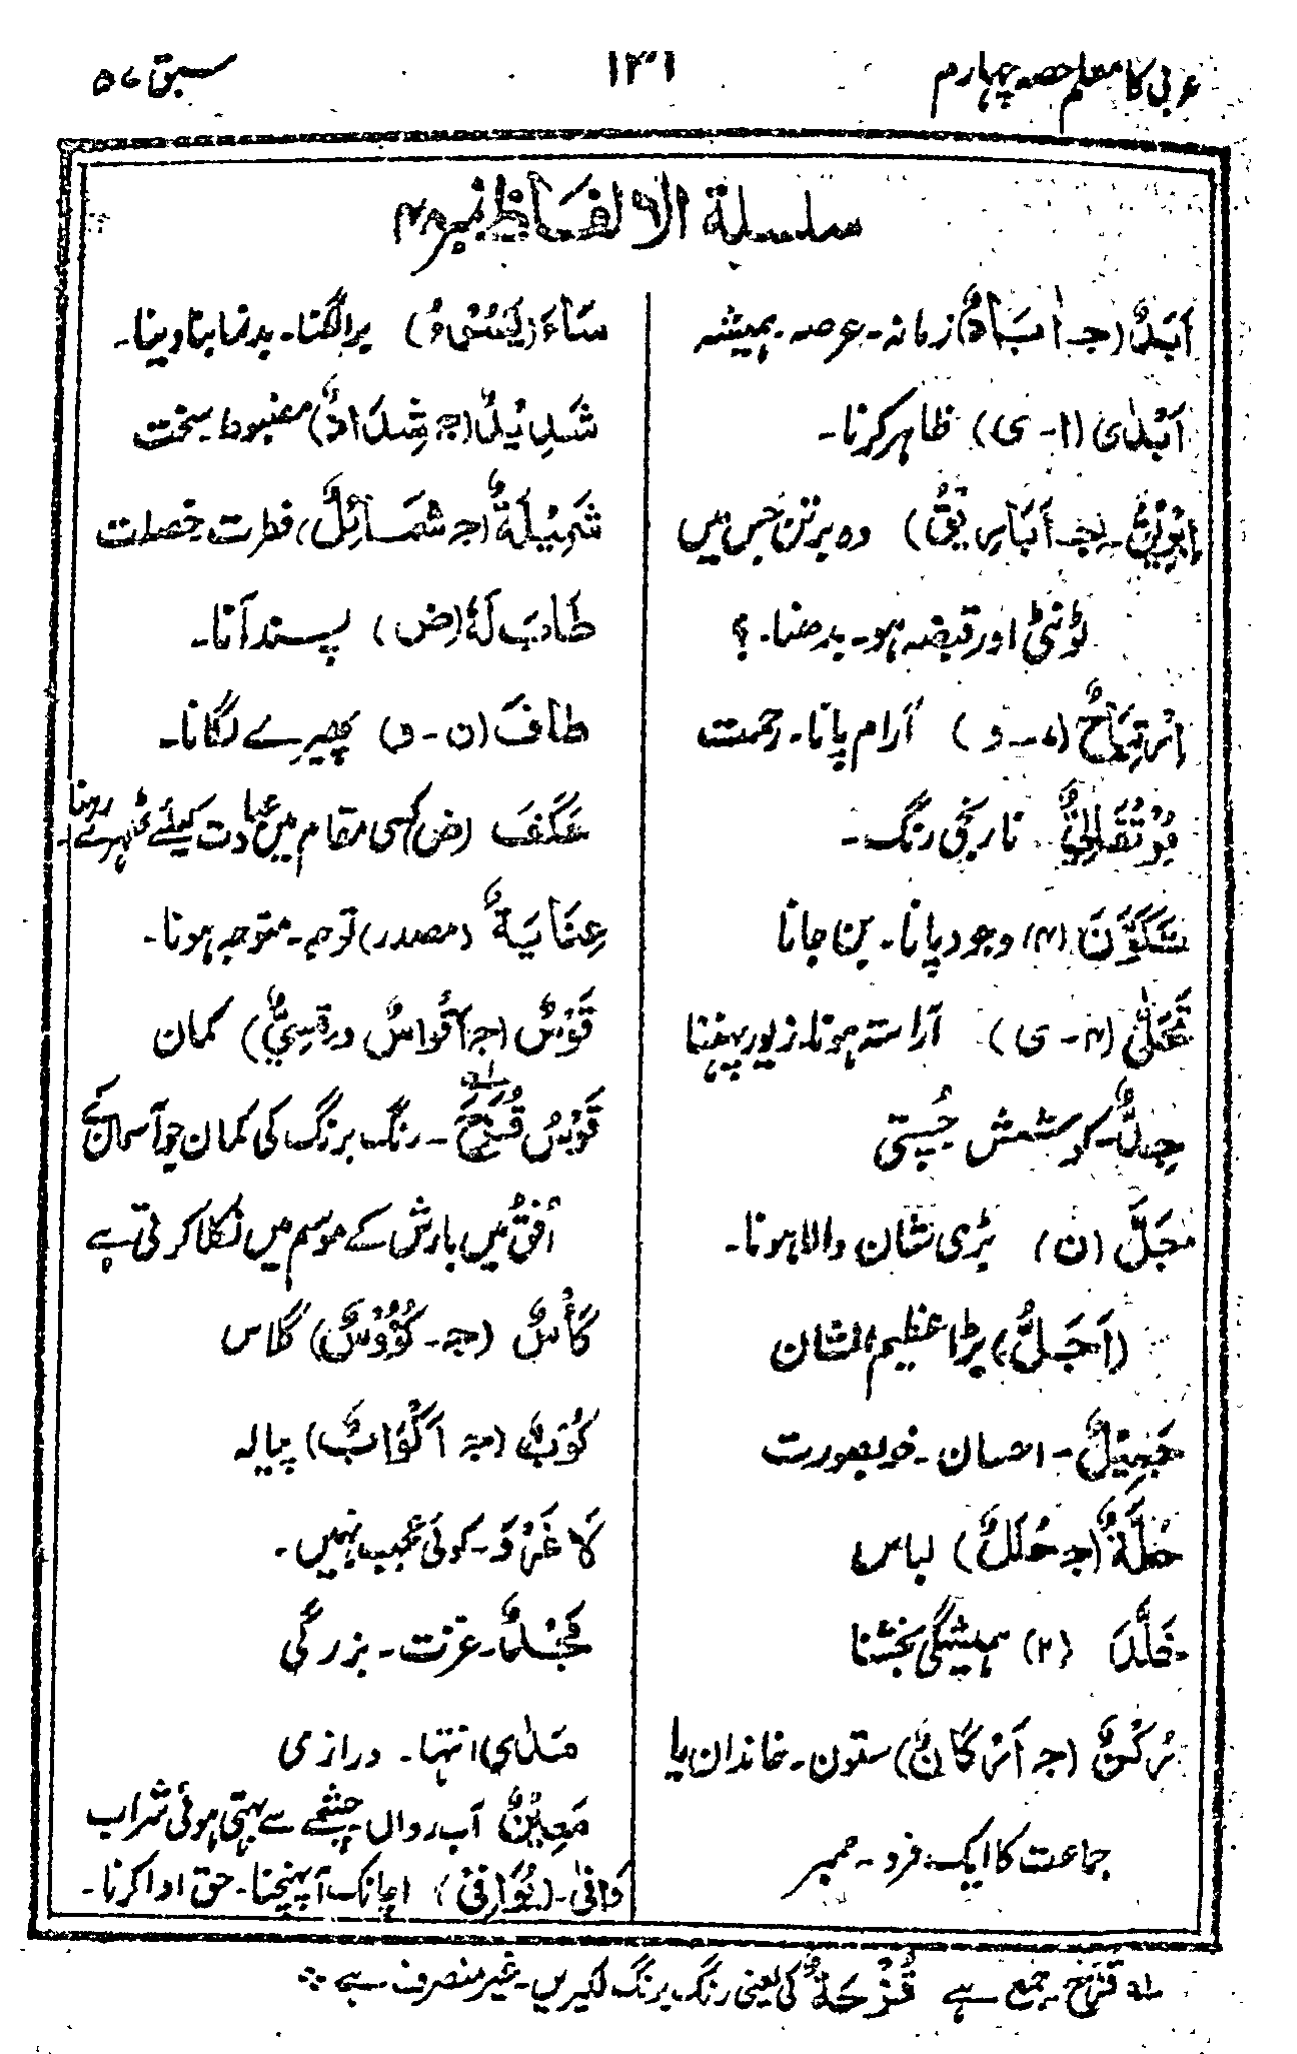 عربی کا معلم حصہ چہارم
۱۳۱
سبق ۵۷
سلسلة الالفاظ نمبر ۴۸
اَبَدٌ (جـ اٰبَادٌ) زمانہ۔ عرصہ۔ ہمیشہ
اَبْدٰی (ا۔ی) ظاہر کرنا۔
اِبْرِیْقٌ۔ (جـ اَبَارِیْقُ) وہ برتن جس میں
ٹونٹی اور قبضہ ہو۔ بدھنا۔ ؟
اِرْتِیَاحٌ (۷۔و) آرام پانا۔ رحمت
بُرْتُقَالِیٌّ نارنجی رنگ۔
تَکَوَّنَ (۴) وجود پانا۔ بن جانا
تَحَلّٰی (۴۔ی) آراستہ ہونا۔ زیور پہننا
جِدٌّ۔ کوشش چُستی
جَلَّ (ن) بڑی شان والا ہونا۔
(اَجَلُّ) بڑا عظیم الشان
جَمِیْلٌ۔ احسان۔ خوبصورت
حُلَّةٌ (جـ حُلَلٌ) لباس
خَلَّدَ (۲) ہمیشگی بخشنا
رُکْنٌ (جـ اَرْکَانٌ) ستون۔ خاندان یا
جماعت کا ایک فرد۔ ممبر
سَاءَ (یَسُوْءُ) برا لگنا۔ بدنما بنا دینا۔
شَدِیْدٌ (جـ شِدَادٌ) مضبوط۔ سخت
شَمِیْلَةٌ (جـ شَمَائِلُ) فطرت خصلت
طَابَ لَهٗ (ض) پسند آنا۔
طَافَ (ن۔و) پھیرے لگانا۔
عَکَفَ (ض) کسی مقام میں عبادت کیلئے ٹھہرے رہنا۔
عِنَایَةٌ (مصدر) توجہ۔ متوجہ ہونا۔
قَوْسٌ (جـ اَقْوَاسٌ و قِسِیٌّ) کمان
قَوْسُ قُزَحَ ؎۱۔ رنگ برنگ کی کمان جو آسمان کے
اُفق میں بارش کے موسم میں نکلا کرتی ہے
کَأْسٌ (جـ۔ کُؤُوْسٌ) گلاس
کُوْبٌ (جـ اَکْوَابٌ) پیالہ
لَا غَرْوَ۔ کوئی عجیب نہیں۔
مَجْدٌ۔ عزت۔ بزرگی
مَدٰی انتہا۔ درازی
مَعِیْنٌ آب رواں چشمے سے بہتی ہوئی شراب
وَافٰی۔ (یُوَافِیْ) اچانک آپہنچنا۔ حق ادا کرنا۔
؎۱ قُزَح۔ جمع ہے قُزْحَةٌ کی یعنی رنگ برنگ لکیریں۔ غیر منصرف ہے